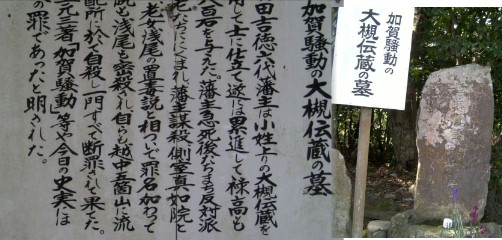 加賀騒動の大槻伝蔵の墓
田吉徳六代藩主は小姓上りの大槻伝蔵を
して士に仕立て遂には累進して禄高も
百石を与えた。藩主急死後たちまち反対派
にくまれ、藩主謀殺、側室真如院と
老女浅尾の置毒説と相ついで罪名加わって
院も浅尾も密殺され自らも越中五箇山に流
配所に於て自殺し一門すべて断罪されて果てた。
三元三著「加賀騒動」等や今日の史実には
の罪であったと明された。
加賀騒動の
大槻伝蔵の墓